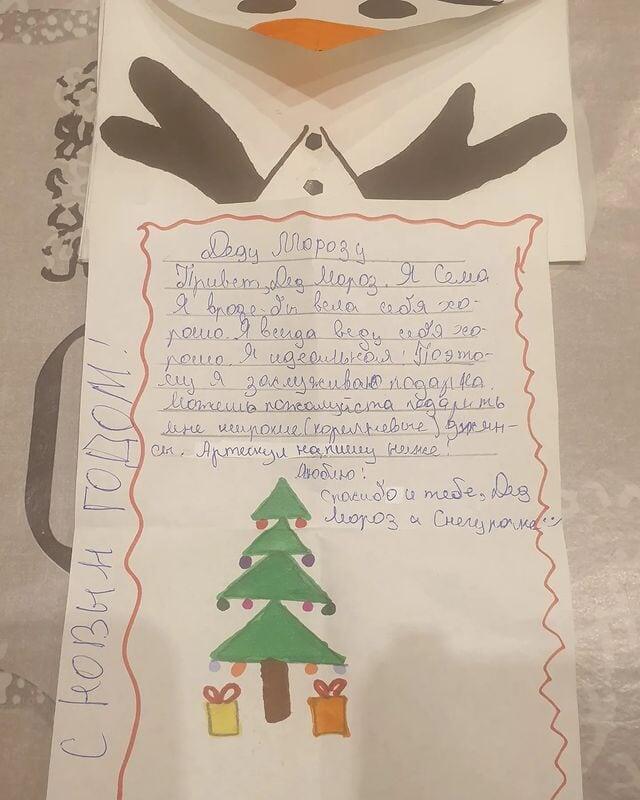 Деду Морозу
Привет, Дед Мороз. Я Сема
Я вроде бы вела себя хо-
рошо. Я всегда веду себя хо-
рошо. Я идеальная! Поэто-
му я заслуживаю подарка.
Можешь пожалуйста подарить
мне широкие (коричневые) джин-
сы. Артескул напишу ниже!
Люблю!
Спасибо и тебе, Дед
Мороз и Снегурочка
С НОВЫМ ГОДОМ!